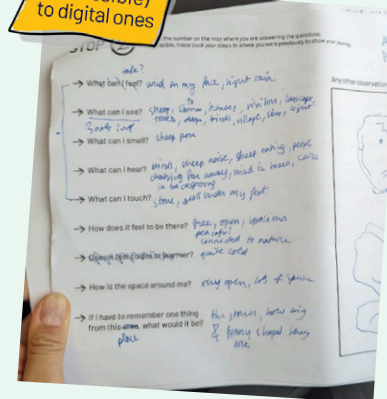 to digital ones
STOP 2
the number on the map where you are answering the questions.
trace back your steps to where you were previously to show your
Any other observation
→ What can I feel? wind on my face, light rain
→ What can I see? sheep, trees, houses, visitors, landscape,
dogs, birds, village, skies, light
→ What can I smell? sheep poo
→ What can I hear? birds, sheep noise, sheep eating, people
chatting far away, wind in trees, cars
in background
→ What can I touch? stone, grass under my feet
→ How does it feel to be there? free, open,
peaceful
connected to nature
warmer? quite cold
→ How is the space around me? very open, lots of space
→ If I have to remember one thing the stones, how big
from this area, what would it be? & funny shaped they
place are